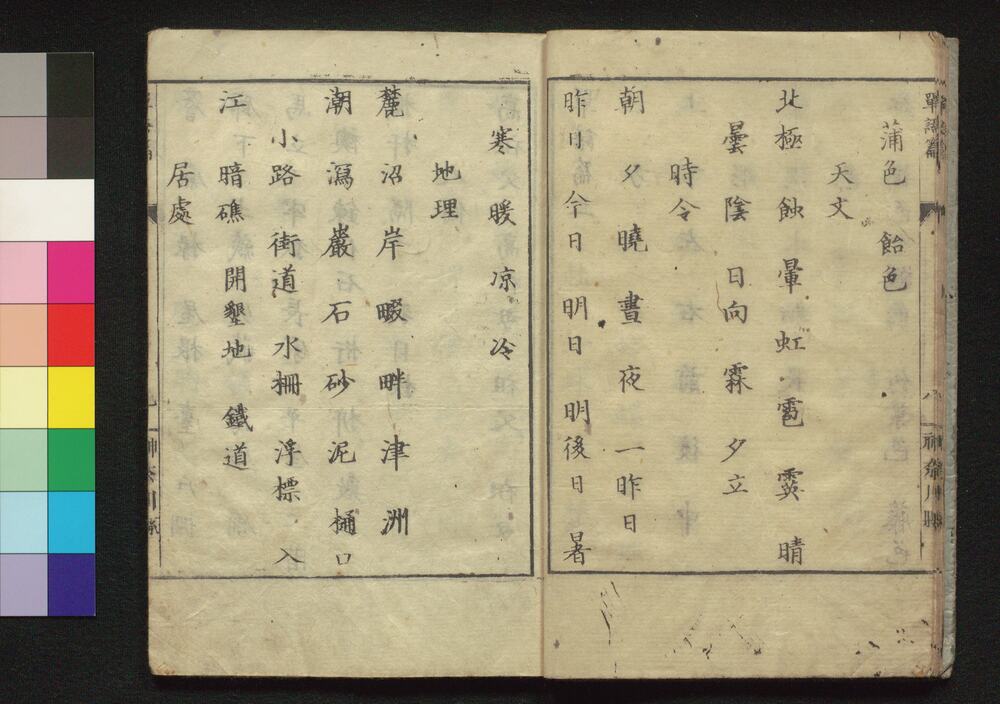 單語篇
八
神奈川縣
蒲色 飴色
天文
北極 蝕 暈 虹 雹 霙 晴
曇 陰 日向 霖 夕立
時令
朝 夕 曉 晝 夜 一昨日
昨日 今日 明日 明後日 暑
寒 暖 凉 冷
地理
麓 沼 岸 畷 畔 津 洲
潮 瀉 巖 石 砂 泥 樋口
小路 街道 水柵 浮標 入
江 暗礁 開墾地 鐵道
居處